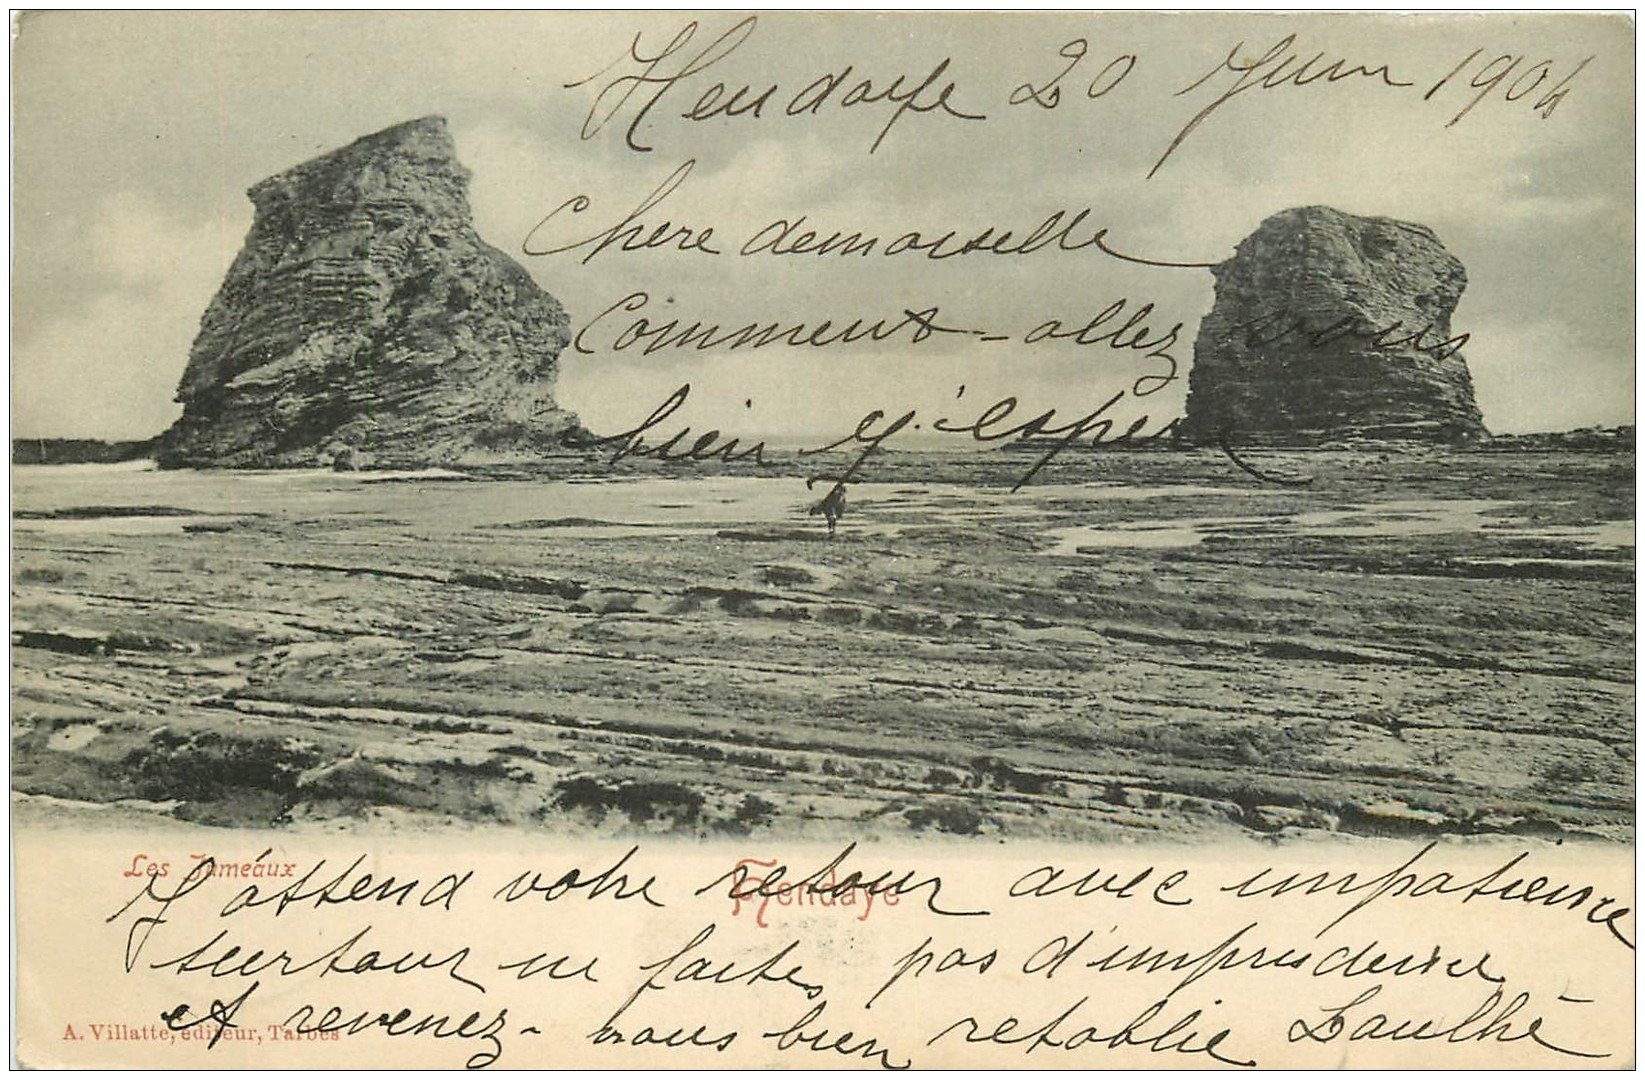 Hendaye 20 Juin 1904
Chere demoiselle
Comment-allez vous
bien j'espere
Les Jumeaux
Hendaye
J'attend votre retour avec impatience
surtout ne faites pas d'imprudence
et revenez-nous bien retablie Laulhé
A. Villatte, éditeur, Tarbes